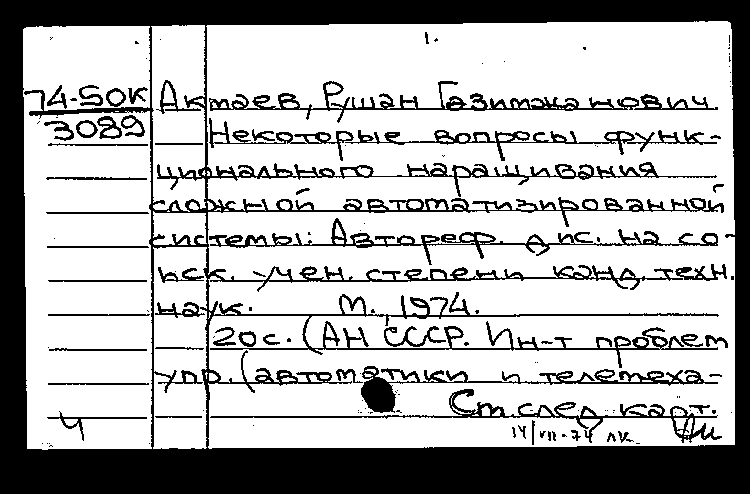 1.
74-50К Актаев, Рушан Газимжанович.
3089 Некоторые вопросы функ-
ционального наращивания
сложной автоматизированной
системы: Автореф. дис. на со-
иск. учен. степени канд. техн.
наук. М., 1974.
20 с. (АН СССР. Ин-т проблем
упр. (автоматики и телемеха-
См. след. карт.
Ч 14/VII-74 лк